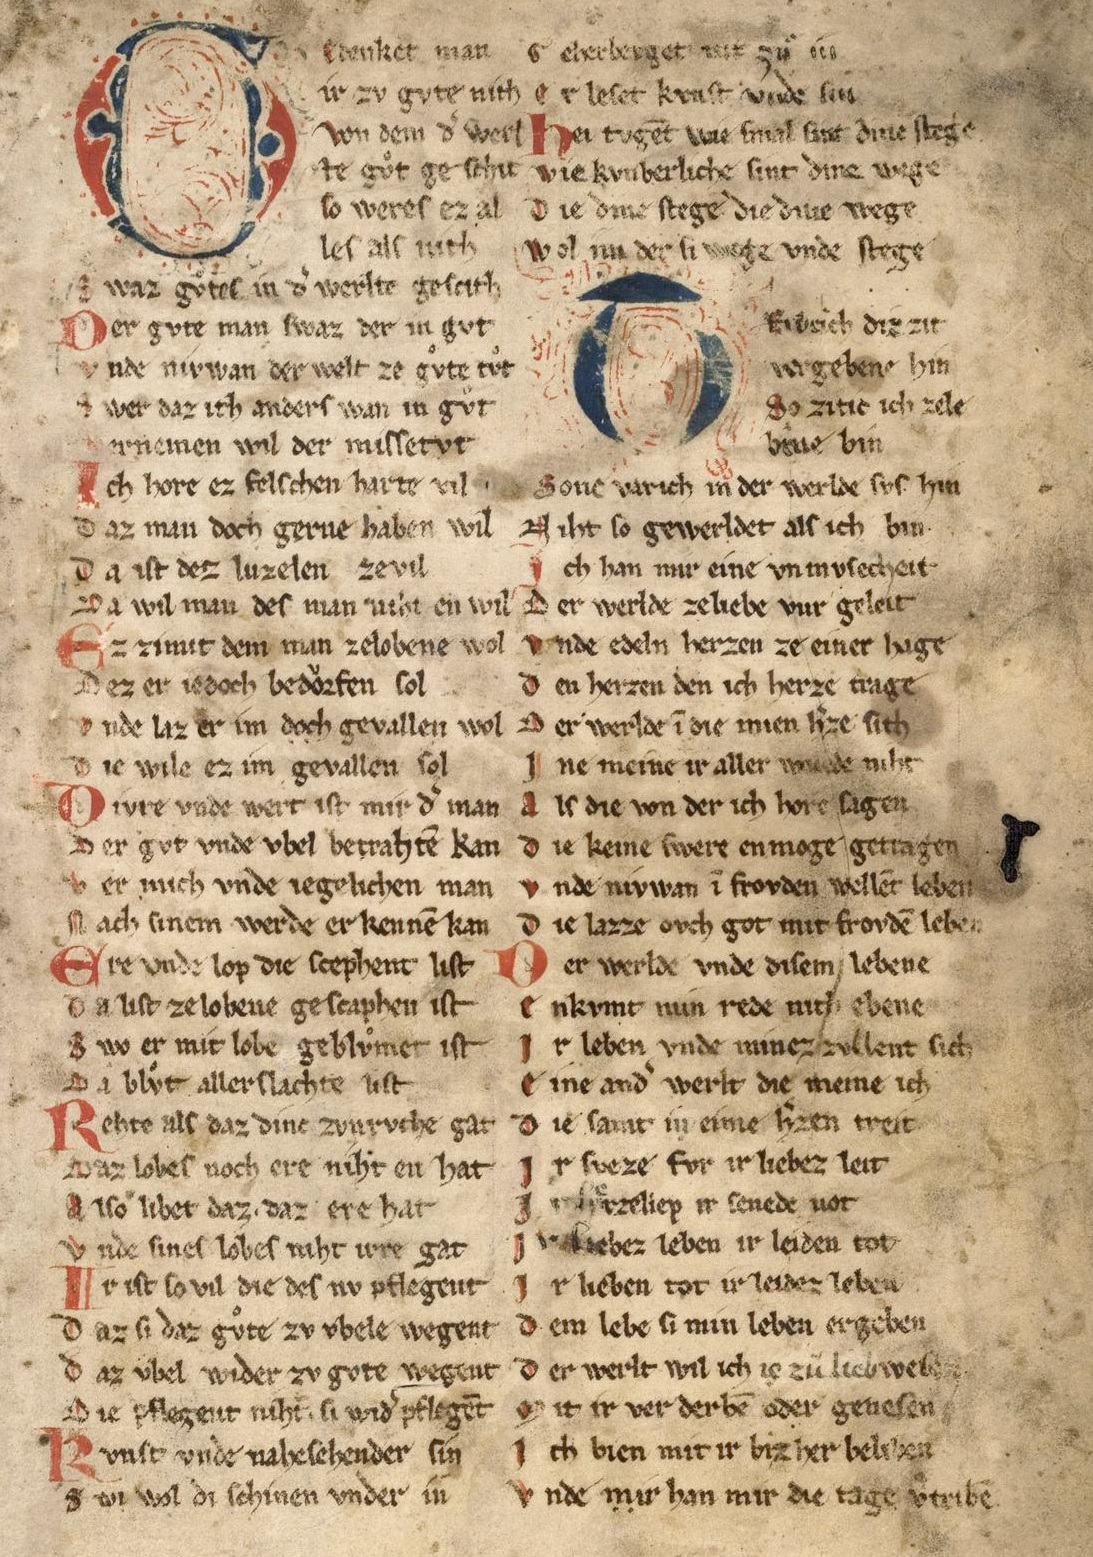 Gedenket man
ir zv gvte nith
von dem d' werl
te gůt ge schit
so weres ez al
les als nith
S waz gůtes in d' werlte gescith
Der gvte man swaz der in gvt
v nde nivwan der welt ze gůte tůt
S wer daz ith anders wan in gůt
v ernemen wil der missetvt
Ich hore ez felschen harte vil
D az man doch gerne haben wil
D a ist dez luzelen zevil
D a wil man des man niht en wil
Ez zimit dem man zelobene wol
D ez er iedoch bedörfen sol
v nde laz er im doch gevallen wol
D ie wile ez im gevallen sol
Divre vnde wert ist mir d' man
D er gvt vnde vbel betrahtē kan
v er mich vnde iegelichen man
N ach sinem werde er kennē kan
Ere vnde lop die scephent list
D a list zelobene gescaphen ist
S wo er mit lobe geblůmet ist
D a blůt allerslachte list
Rehte als daz dinc zvnrvche gat
D az lobes noch ere niht en hat
A lso libet daz. daz ere hat
v nde sines lobes niht irre gat
Ir ist so vil die des nv pflegent
D az si daz gůte zv vbele wegent
D az vbel wider zv gote wegent
D ie pflegent niht. si wid' pflegēt
Kvnst vnde nahesehender sin
S wi wol di schinen vnder in
G eherberget nit zů in
e r leset kvnst vnde sin
Hei tvgēt wie smal sint dine stege
wie kvnberliche sint dine wege
D ie dine stege die dine wege
W ol im der si wege vnde stege
Tribich die zit
vergebene hin
So zitic ich zele
bene bin
Sone varich in der werlde svs hin
N iht so gewerldet als ich bin.
I ch han mir eine vnmvsecheit
D er werlde zeliebe vur geleit
v nde edeln herzen ze einer hage
D en herzen den ich herze trage
D er werlde ī die mien h'ze sith
I ne meine ir aller werlde niht
A ls die von der ich hore sagen
D ie keine swere enmoge getragen
v nde nivwan ī frovden wellēt leben
D ie lazze ovch got mit frovdē leben
Der werlde vnde disem lebene
e nkvmt min rede nith ebene
I r leben vnde minez zvllent sich
e ine and' werlt die meine ich
D ie samt in eime h'zen treit
I r sveze svr ir liebez leit
I r herzeliep ir senede not
I r liebez leben ir leiden tot
I r lieben tot ir leidez leben
D em lebe si min leben ergeben
D er werlt wil ich ie zů lieb wesen
M it ir ver derbē oder genesen
I ch bien mit ir biz her beliben
v nde mir han mir die tage v'tribē